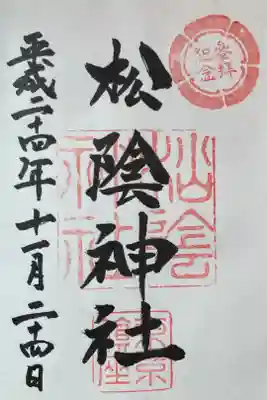 参拝記念
松陰神社
平成二十四年十一月二十四日
松陰神社
東京鎮座